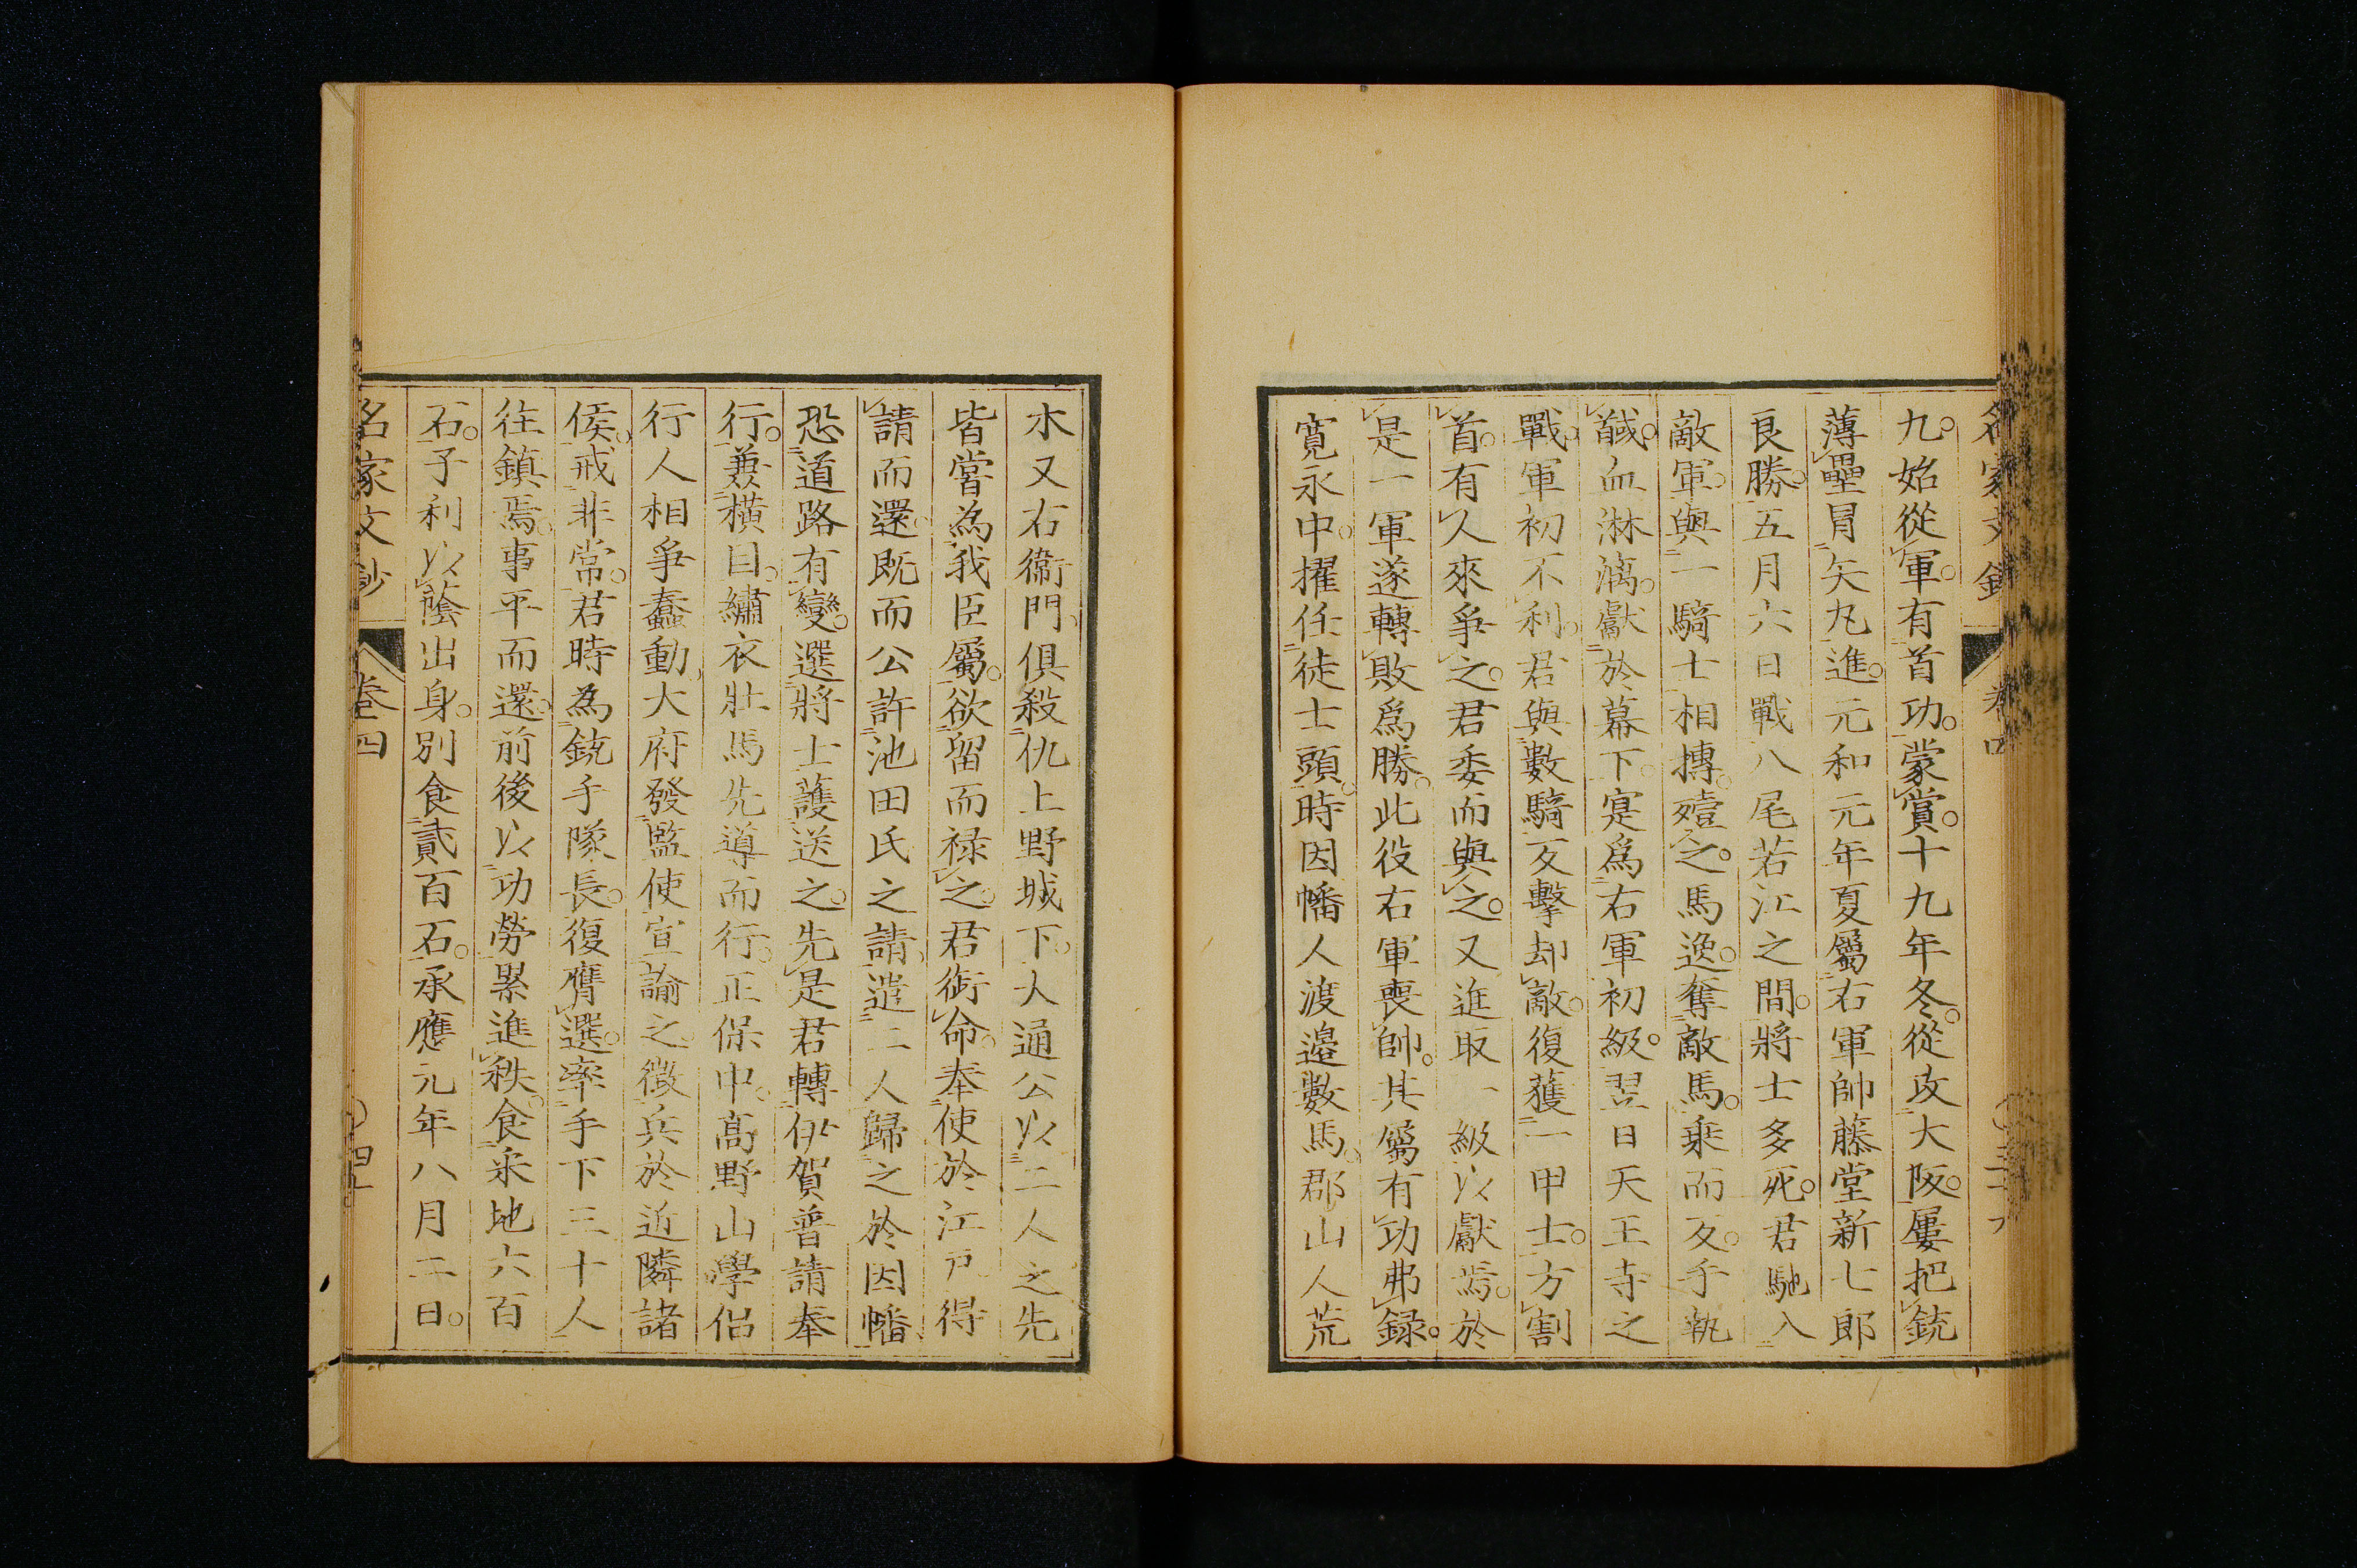 九。始從軍。有首功。蒙賞。十九年冬。從攻大阪。屢把銃
薄壘冒矢丸進。元和元年夏屬右軍帥藤堂新七郎
良勝。五月六日戰八尾若江之間。將士多死。君馳入
敵軍。與一騎士相搏。殪之。馬逸。奪敵馬。乗而反。手執
馘。血淋漓。獻於幕下。寔爲右軍初級。翌日天王寺之
戰。軍初不利。君與數騎反擊却敵。復獲一甲士。方割
首。有人來爭之。君委而與之。又進取一級以獻焉。於
是一軍遂轉敗爲勝。此役右軍喪帥。其屬有功弗録。
寛永中。擢任徒士頭。時因幡人渡邉數馬。郡山人荒
木又右衞門。俱殺仇上野城下。大通公以二人之先
皆嘗為我臣屬。欲留而禄之。君銜命。奉使於江戸得
請而還。既而公許池田氏之請。遣二人歸之於因幡
恐道路有變。選將士護送之。先是君轉伊賀普請奉
行。兼横目。繡衣壮馬先導而行。正保中。高野山學侶
行人相爭蠢動。大府發監使宣諭之。徴兵於近隣諸
侯。戒非常。君時為銃手隊長。復膺選。率手下三十人
往鎮焉。事平而還。前後以功勞累進秩。食釆地六百
石。子利以蔭出身。別食貳百石。承應元年八月二日。
名家文鈔 卷四